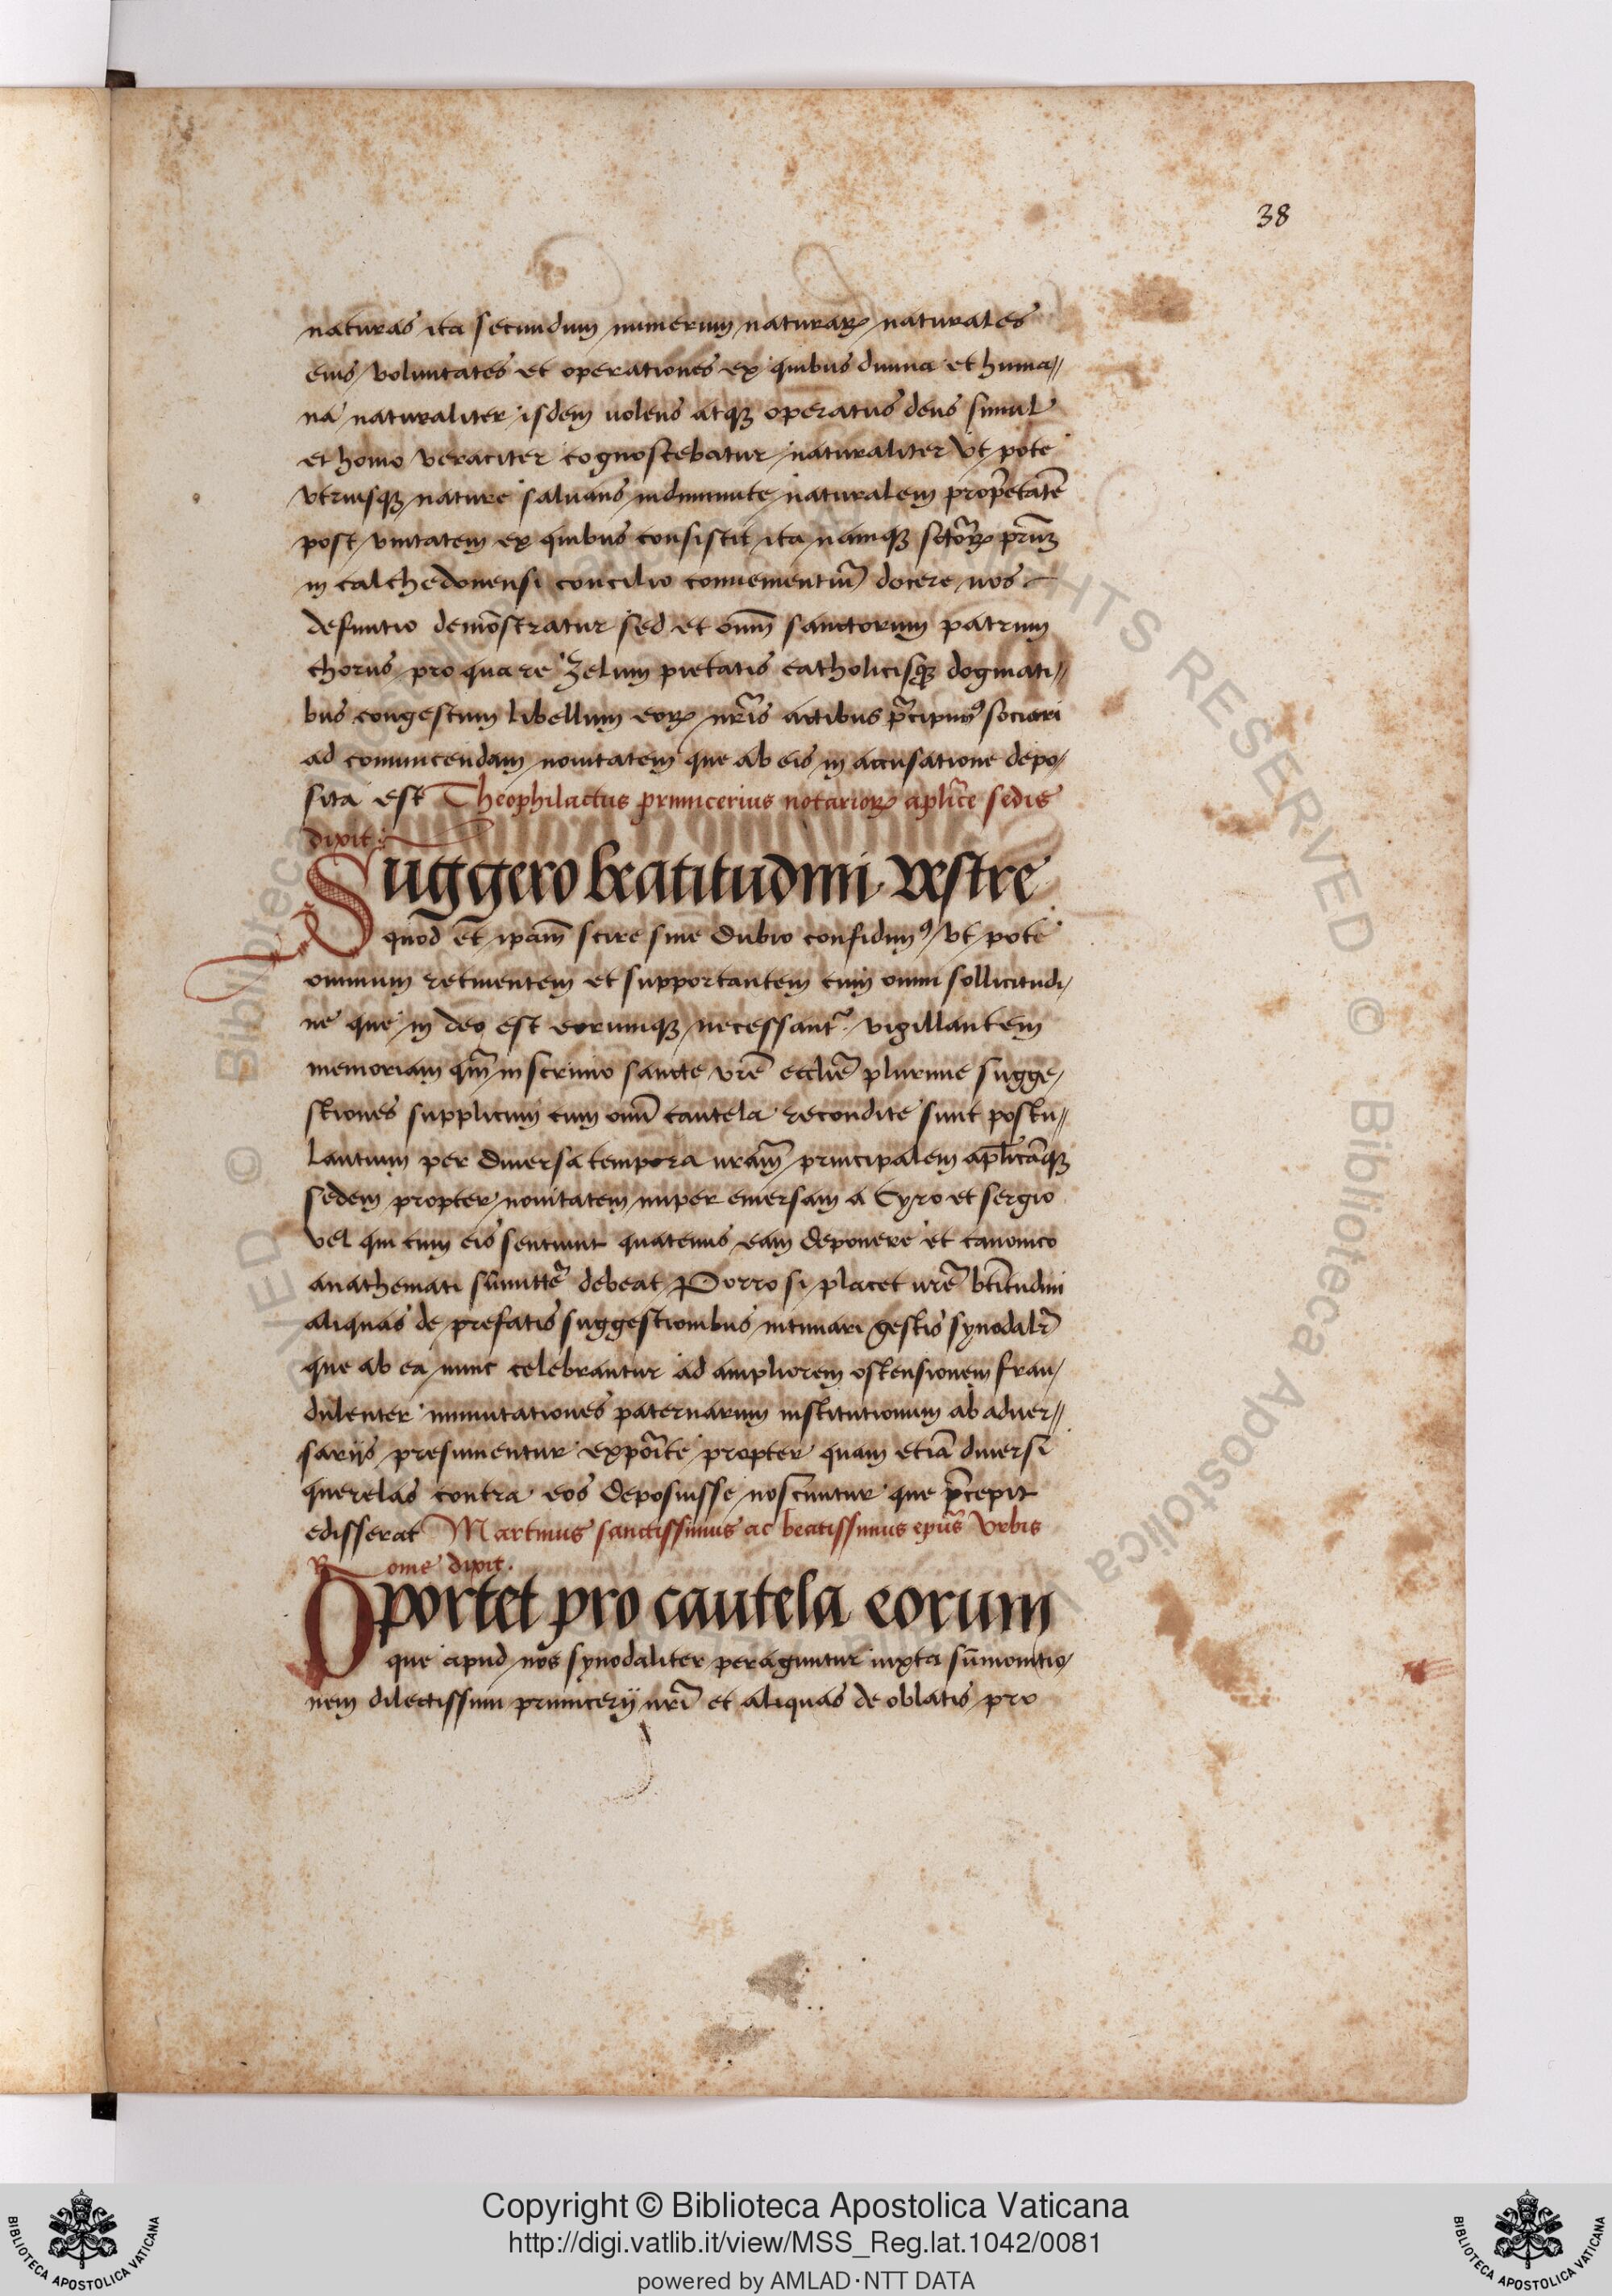 38
naturas ita secundum numerum naturaꝝ naturales
eius voluntates et operationes ex quibus diuina et huma//
na naturaliter isdem uolens atqꝫ operatus deus simul
et homo veraciter cognoscebatur naturaliter vt pote
vtriusqꝫ nature saluans indiminute naturalem prop̄etatē
post vnitatem ex quibus consistit ita namqꝫ
in calchedonensi concilio conuenientiū docere nos
definitio demōstratur sed et oīum sanctorum patrum
chorus pro qua re zelum pietatis catholicisqꝫ dogmati//
bus congestum libellum eoꝝ nr̄is actibus p̄cipimꝰ sociari
ad conuincendam nouitatem que ab eis in accusatione depo/
sita est Theophilactus primicerius notarioꝝ apl̄ice sedis
dixit:
Suggero beatitudini vestre
quod et ip̄am scire sine dubio confidimꝰ vt pote
omnium retinentem et supportantem cum omni sollicitudi/
ne que in deo est eorumqꝫ vigillantem
memoriam qm̄ in scrinio sancte vr̄e eccl̄ie plurime sugge/
stiones supplicum cum om̄i cautela recondite sunt postu//
lantium per diuersa tempora ur̄am principalem apl̄icāqꝫ
sedem propter nouitatem nuper emersam a Cyro et sergio
vel qui cum eis sentiunt quatenus eam deponere et canonico
anathemati debeat Porro si placet ur̄e bt̄itudini
aliquas de prefatis suggestionibus intimari gestis synodalr̄
que ab ea nunc celebrantur ad ampliorem ostensionem frau/
dulenter inmutationes paternarum institutionum ab aduer//
sarijs presumentur propter quam etiā diuersi
querelas contra eos deposuisse noscuntur que p̄cepit
edisserat Martinus sanctissimus ac beatissimus ep̄us vrbis
Rome dixit.
Oportet pro cautela eorum
que apud nos synodaliter peraguntur iuxta sūmonitio/
nem dilectissimi primicerij nr̄i et aliquas de oblatis pro
Copyright © Biblioteca Apostolica Vaticana
http://digi.vatlib.it/view/MSS_Reg.lat.1042/0081
powered by AMLAD·NTT DATA
BIBLIOTECA APOSTOLICA VATICANA
BIBLIOTECA APOSTOLICA VATICANA